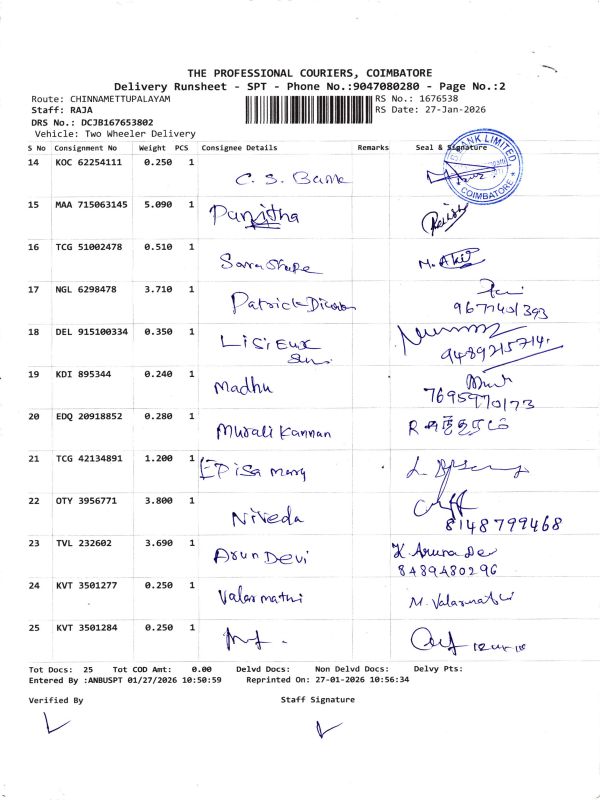 THE PROFESSIONAL COURIERS, COIMBATORE
Delivery Runsheet - SPT - Phone No.:9047080280 - Page No.:2
Route: CHINNAMETTUPALAYAM RS No.: 1676538
Staff: RAJA RS Date: 27-Jan-2026
DRS No.: DCJB167653802
Vehicle: Two Wheeler Delivery
S No Consignment No Weight PCS Consignee Details Remarks Seal & Signature
14 KOC 62254111 0.250 1
C. S. Bank
BANK LIMITED
COIMBATORE
15 MAA 715063145 5.090 1
Panjitha
16 TCG 51002478 0.510 1
17 NGL 6298478 3.710 1
Patrick
18 DEL 915100334 0.350 1
LISIEUX
9489215714
19 KDI 895344 0.240 1
Madhu
7695970173
20 EDQ 20918852 0.280 1
Murali Kannan
21 TCG 42134891 1.200 1
22 OTY 3956771 3.800 1
Niveda
8148799468
23 TVL 232602 3.690 1
Arun Devi
8489480296
24 KVT 3501277 0.250 1
Valarmathi M. Valarmathi
25 KVT 3501284 0.250 1
Tot Docs: 25 Tot COD Amt: 0.00 Delvd Docs: Non Delvd Docs: Delvy Pts:
Entered By :ANBUSPT 01/27/2026 10:50:59 Reprinted On: 27-01-2026 10:56:34
Verified By Staff Signature